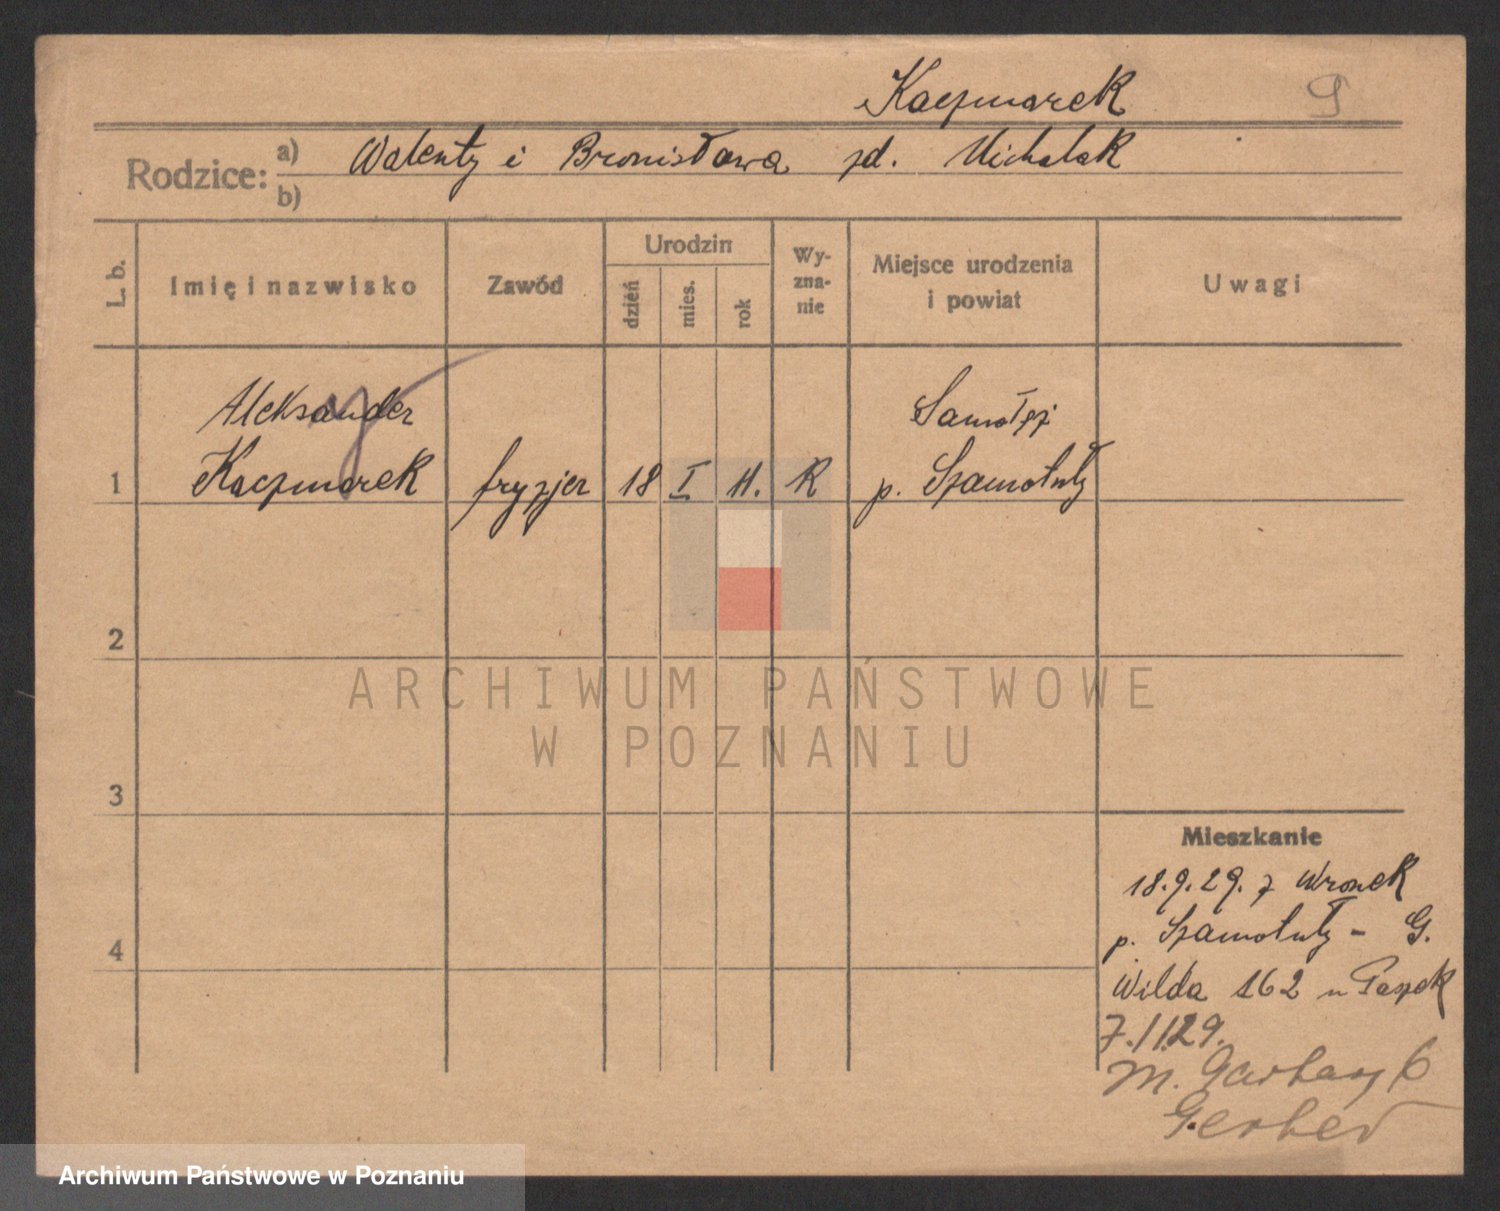 Kaczmarek
9
Rodzice: a) Walenty i Bronisława zd. Michalak
b)
L. b. Imię i nazwisko Zawód Urodzin dzień mies. rok Wy-zna-nie Miejsce urodzenia i powiat Uwagi
Aleksander Samołęż
1 Kaczmarek fryzjer 18 I 11. R p. Szamotuły
2
ARCHIWUM PAŃSTWOWE
W POZNANIU
3
Mieszkanie
18.9.29. z Wronek
p. Szamotuły - G.
4
Wilda 162 u
7.11.29.
M. Garbary 6
Gerber
Archiwum Państwowe w Poznaniu